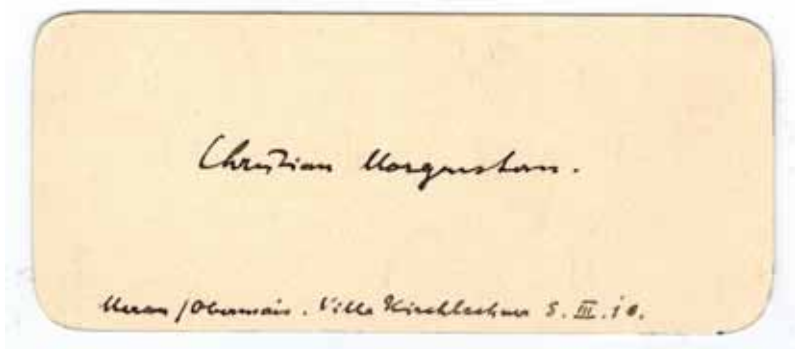 Christian Morgenstern.
Meran/Obermais. Villa Kirchlechner 5. III. 10.